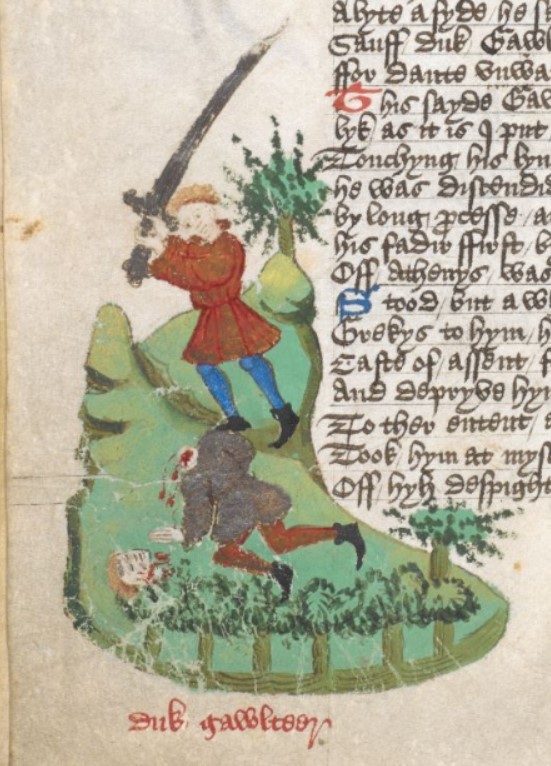 Alyte asyde he se
Sauff duk Gawl
ffor dante vnwa
This sayde Gaw
lyk as it is I put
Touchyng his lyn
he was discendid
by long processe a
his fadir ffirst b
Off Athenys was
Stood but a w
Grekys to hym h
Caste of assent f
And depryve hy
To ther entent a
Took hym at mys
Off hyh despight
Duk gawlteer